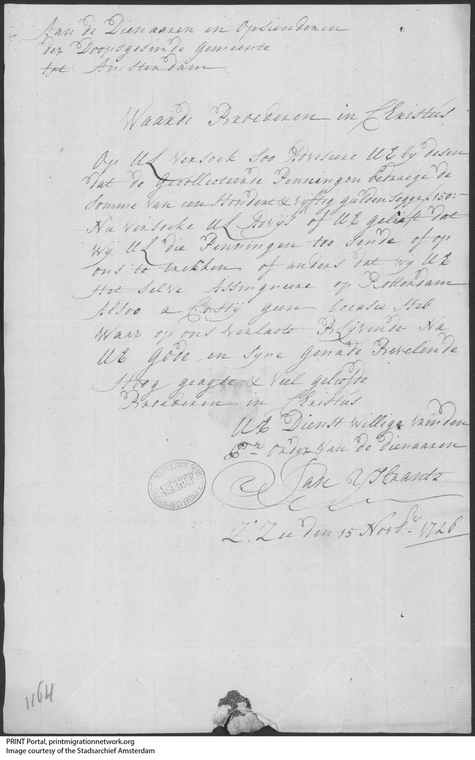 Aan de Dienaaren en Opsienderen
der Doopsgesinde gemeente
tot Amsterdam
Waarde Broederen in Christus
Op UL versoek soo Adviseere UE by desen
dat de gecollecteerde Penningen bedraage de
Somme van een Hondert & vyftig gulden segge f 150:
Nu versoeke UL Advys of UE gelieft dat
wy UL die Penningen toe Sende of op
ons te trekken of anders dat wy UE
Het selve Assingneere op Rotterdam
Alsoo a Costy geen
Waar op ons verlaate Blyvende Na
UE Gode en Syne genade Bevelende
Hoog geagte & veel geliefde
Broederen in Christus
UE Dienst willige vrinden
Uyt order van de dienaaren
Jan Ysbrants
Z:Zee den 15 Novbr 1726
1164
PRINT Portal, printmigrationnetwork.org
Image courtesy of the Stadsarchief Amsterdam